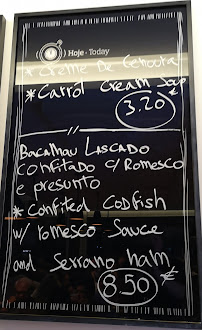 Hoje · Today
* Creme De Cenoura
* Carrot Cream Soup
3.20 €
Bacalhau Lascado
confitado c/ Romesco
e presunto
* Confited Codfish
w/ romesco Sauce
and Serrano ham
8.50 €